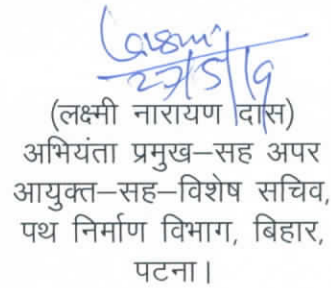 Laxmi
27/5/19
(लक्ष्मी नारायण दास)
अभियंता प्रमुख–सह अपर
आयुक्त–सह–विशेष सचिव,
पथ निर्माण विभाग, बिहार,
पटना।